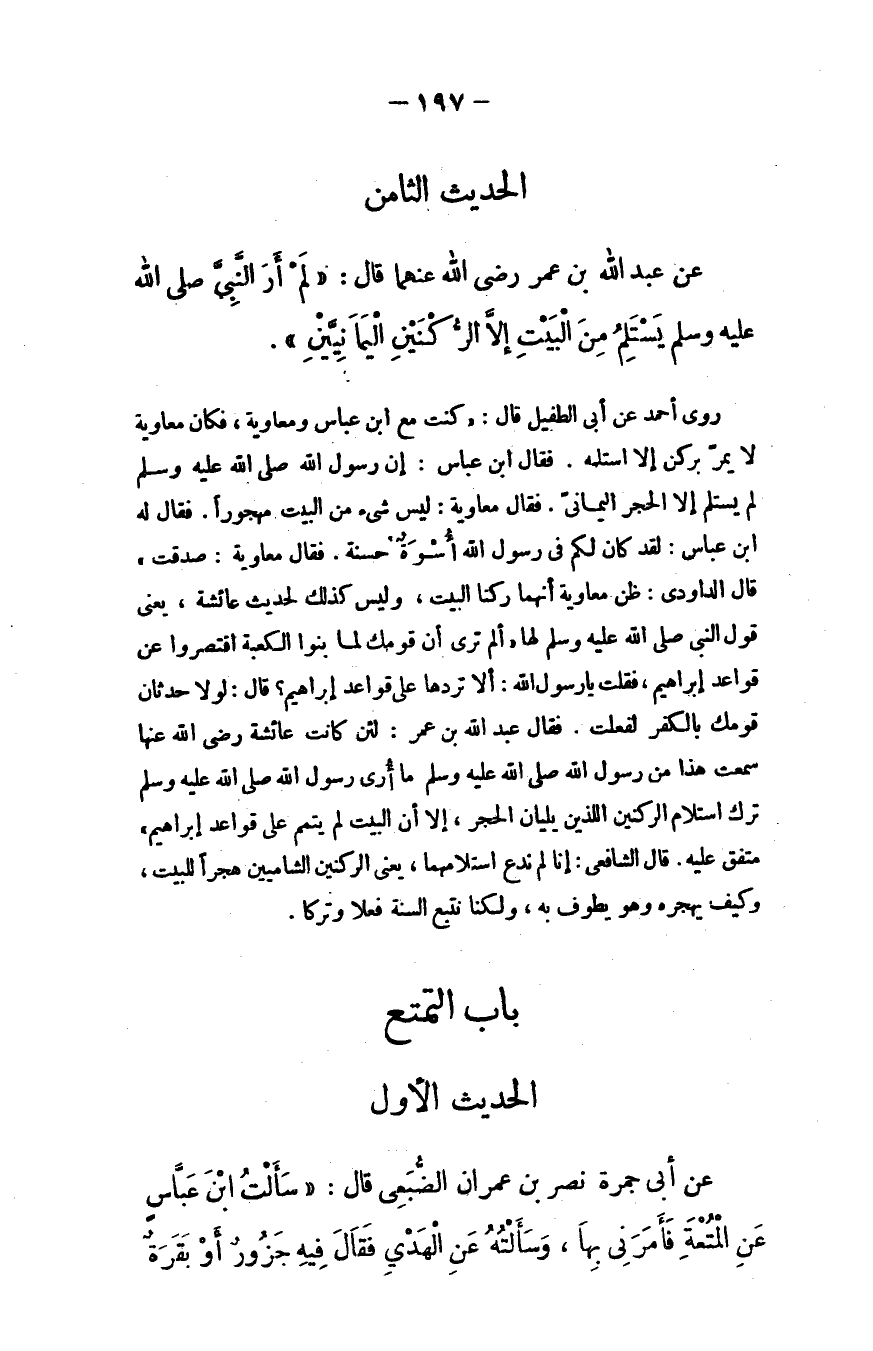 — ١٩٧ —
الحديث الثامن
عن عبد الله بن عمر رضى الله عنهما قال : « لَمْ أَرَ النَّبِيَّ صلى الله
عليه وسلم يَسْتَلِمُ مِنَ الْبَيْتِ إلاَّ الرُّكْنَيْنِ الْيَمَانِيَّيْنِ » .
روى أحمد عن أبى الطفيل قال : « كنت مع ابن عباس ومعاوية ، فكان معاوية
لا يمرّ بركن إلا استلمه . فقال ابن عباس : إن رسول الله صلى الله عليه وسلم
لم يستلم إلا الحجر اليمانىّ . فقال معاوية : ليس شىء من البيت مهجوراً . فقال له
ابن عباس : لقد كان لكم فى رسول الله أُسْوَةٌ حسنة . فقال معاوية : صدقت »
قال الداودى : ظن معاوية أنهما ركنا البيت ، وليس كذلك لحديث عائشة ، يعنى
قول النبي صلى الله عليه وسلم لها « ألم ترى أن قومك لما بنوا الكعبة اقتصروا عن
قواعد إبراهيم ، فقلت يارسول الله : ألا تردها على قواعد إبراهيم؟ قال : لولا حدثان
قومك بالكفر لفعلت . فقال عبد الله بن عمر : لئن كانت عائشة رضى الله عنها
سمعت هذا من رسول الله صلى الله عليه وسلم ما أُرى رسول الله صلى الله عليه وسلم
ترك استلام الركنين اللذين يليان الحجر ، إلا أن البيت لم يتمم على قواعد إبراهيم»
متفق عليه . قال الشافعى : إنا لم ندع استلامهما ، يعنى الركنين الشاميين هجراً للبيت ،
وكيف يهجره وهو يطوف به ، ولكنا نتبع السنة فعلا وتركا .
باب التمتع
الحديث الأول
عن أبى جمرة نصر بن عمران الضُّبَعِى قال : « سَأَلْتُ ابْنَ عَبَّاسٍ
عَنِ الْمُتْعَةِ فَأَمَرَنِى بِهاَ ، وَسَأَلْتُهُ عَنِ الْهَدْيِ فَقَالَ فِيهِ جَزُورٌ أَوْ بَقَرَةٌ